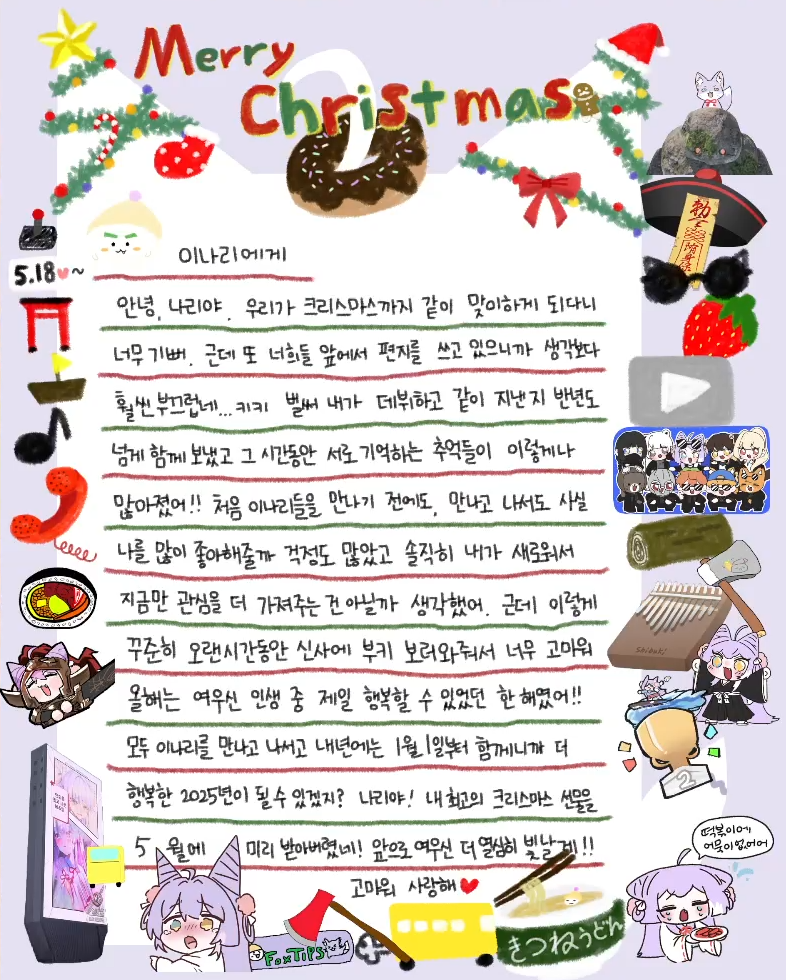 Merry
Christmas
5.18~
이나리에게
안녕, 나리야. 우리가 크리스마스까지 같이 맞이하게 되다니
너무 기뻐. 근데 또 너희들 앞에서 편지를 쓰고 있으니까 생각보다
훨씬 부끄럽네... 키키 벌써 내가 데뷔하고 같이 지낸지 반년도
넘게 함께 보냈고 그 시간동안 서로 기억하는 추억들이 이렇게나
많아졌어!! 처음 이나리들을 만나기 전에도, 만나고 나서도 사실
나를 많이 좋아해줄까 걱정도 많았고 솔직히 내가 새로워서
지금만 관심을 더 가져주는건 아닐까 생각했어. 근데 이렇게
꾸준히 오랜시간동안 신사에 부키 보러와줘서 너무 고마워
올해는 여우신 인생 중 제일 행복할 수 있었던 한 해였어!!
모두 이나리를 만나고 나서고 내년에는 1월 1일부터 함께니까 더
행복한 2025년이 될 수 있겠지? 나리야! 내 최고의 크리스마스 선물을
5월에 미리 받아버렸네! 앞으로 여우신 더 열심히 빛날게!!
고마워 사랑해
Shibuki
2
떡볶이에
어묵이 없어어
FoxTIPS
きつねうどん